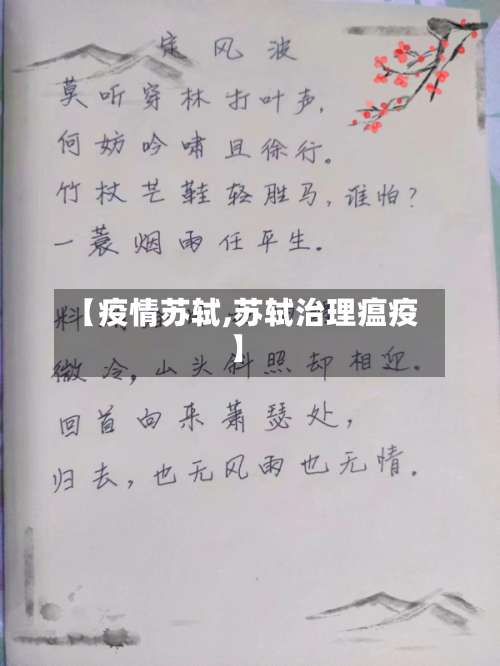 定风波
莫听穿林打叶声,
何妨吟啸且徐行。
竹杖芒鞋轻胜马,谁怕?
一蓑烟雨任平生。
【疫情苏轼,苏轼治理瘟疫
】
料
微冷,山头斜照却相迎。
回首向来萧瑟处,
归去,也无风雨也无情。